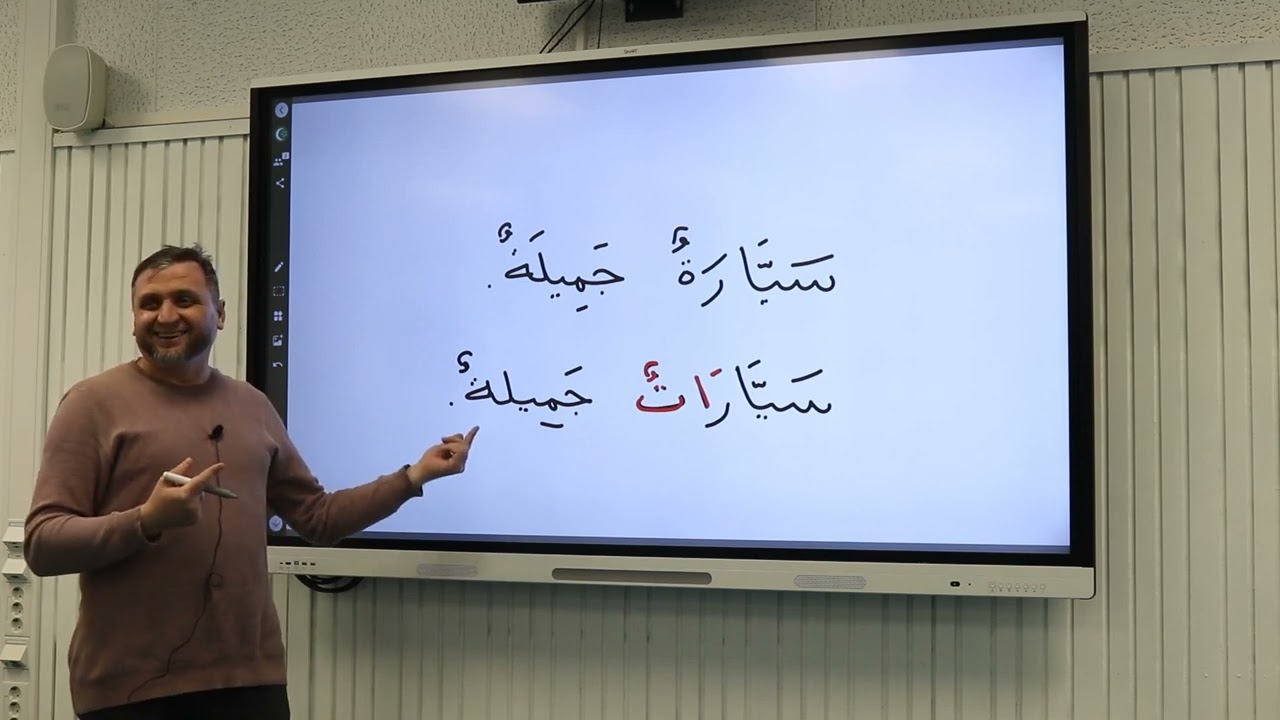 سَيَّارَةٌ جَمِيلَةٌ.
سَيَّارَاتٌ جَمِيلةٌ.